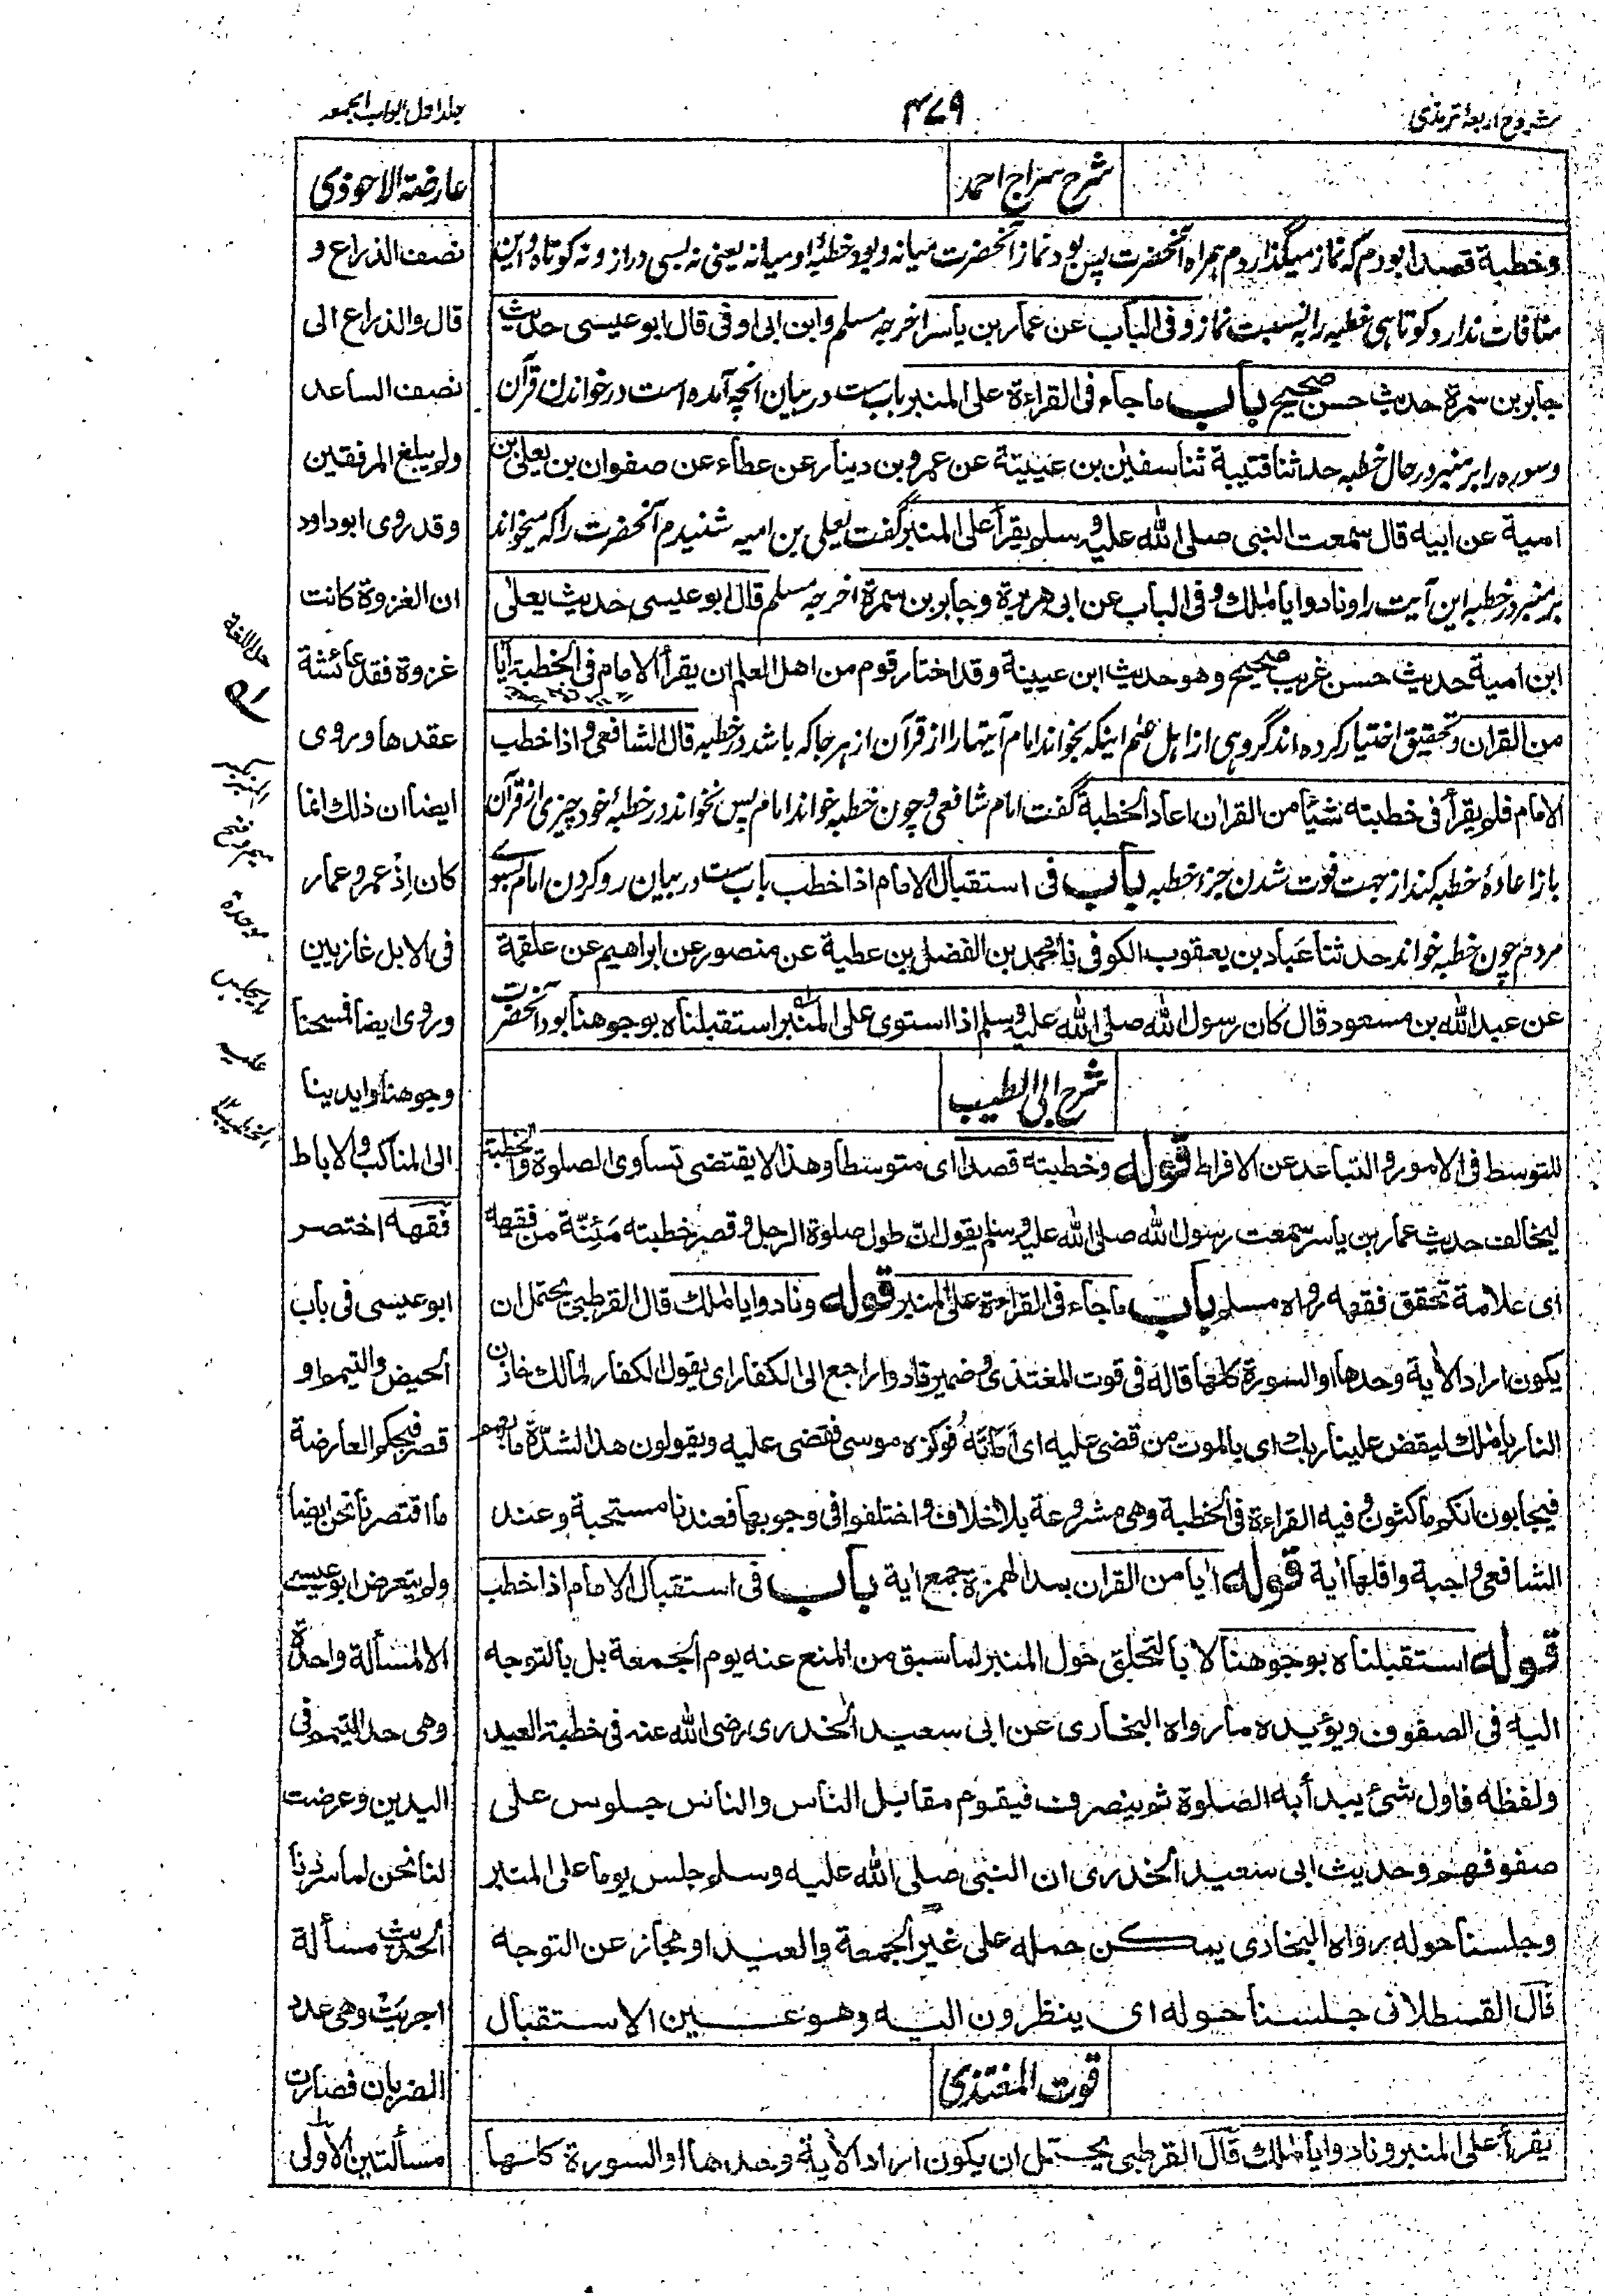 شروح اربعهٔ ترمذی
۴۷۹
جلد اول ابواب الجمعه
شرح سراج احمد
وخطبة قصدا بودم که نماز میگذاردم همراه آنحضرت پس بود نماز آنحضرت میانه وبود خطبهٔ او میانه یعنی نه بسی دراز و نه کوتاه واین
منافات ندارد کوتاهی خطبه را به نسبت نماز وفی الباب عن عمار بن یاسر اخرجه مسلم وابن ابی اوفی قال ابو عیسی حدیث
جابر بن سمرة حدیث حسن صحیح باب ما جاء فی القراءة علی المنبر بابست در بیان آنچه آمده است در خواندن قرآن
وسوره را بر منبر در حال خطبه حدثنا قتیبة ثنا سفین بن عیینة عن عمرو بن دینار عن عطاء عن صفوان بن یعلی بن
امیة عن ابیه قال سمعت النبی صلی الله علیه وسلم یقرأ علی المنبر گفت یعلی بن امیه شنیدم آنحضرت را که میخواند
بر منبر در خطبه این آیت را ونادوا یا ملك وفی الباب عن ابی هریرة وجابر بن سمرة اخرجه مسلم قال ابو عیسی حدیث یعلی
ابن امیة حدیث حسن غریب صحیح وهو حدیث ابن عیینة وقد اختار قوم من اهل العلم ان یقرأ الامام فی الخطبة آیا
من القران وتحقیق اختیار کرده اند گروهی از اهل علم اینکه بخواند امام آیتها را از قرآن از هر جا که باشد در خطبه قال الشافعی واذا خطب
الامام فلم یقرأ فی خطبته شیئا من القران اعاد الخطبة گفت امام شافعی وچون خطبه خواند امام پس نخواند در خطبهٔ خود چیزی از قرآن
باز اعادهٔ خطبه کند از جهت فوت شدن جزء خطبه باب فی استقبال الامام اذا خطب بابست در بیان رو کردن امام بسوے
مردم چون خطبه خواند حدثنا عباد بن یعقوب الکوفی نا محمد بن الفضل بن عطیة عن منصور عن ابراهیم عن علقمة
عن عبد الله بن مسعود قال کان رسول الله صلی الله علیه وسلم اذا استوی علی المنبر استقبلناه بوجوهنا بود آنحضرت
شرح ابی الطیب
للتوسط فی الامور والتباعد عن الافراط قوله وخطبته قصدا ای متوسطا وهذا لا یقتضی تساوی الصلوة والخطبة
لیخالف حدیث عمار بن یاسر سمعت رسول الله صلی الله علیه وسلم یقول انّ طول صلوة الرجل وقصر خطبته مَئِنّة من فقهه
ای علامة تحقق فقهه رواه مسلم باب ما جاء فی القراءة علی المنبر قوله ونادوا یا ملك قال القرطبی یحتمل ان
یکون اراد الآیة وحدها او السورة کلها قاله فی قوت المغتذی وضمیر نادوا راجع الی الکفار ای یقول الکفار لمالك خازن
النار یا ملك لیقض علینا ربك ای بالموت من قضی علیه ای اَماتَهُ فوکزه موسی فقضی علیه ویقولون هذا لشدّة ما بهم
فیجابون انکم ماکثون وفیه القراءة فی الخطبة وهی مشروعة بلا خلاف واختلفوا فی وجوبها فعندنا مستحبة وعند
الشافعی واجبة واقلها آیة قوله آیا من القران بمد الهمزة جمع آیة باب فی استقبال الامام اذا خطب
قوله استقبلناه بوجوهنا لا بالتحلق حول المنبر لما سبق من المنع عنه یوم الجمعة بل بالتوجه
الیه فی الصفوف ویؤیده ما رواه البخاری عن ابی سعید الخدری رضی الله عنه فی خطبة العید
ولفظه فاول شیٔ یبدأ به الصلوة ثم ینصرف فیقوم مقابل الناس والناس جلوس علی
صفوفهم وحدیث ابی سعید الخدری ان النبی صلی الله علیه وسلم جلس یوما علی المنبر
وجلسنا حوله رواه البخاری یمکن حمله علی غیر الجمعة والعید او مجاز عن التوجه
قال القسطلانی جلسنا حوله ای ینظرون الیه وهو عین الاستقبال
قوت المغتذی
یقرأ علی المنبر ونادوا یا ملك قال القرطبی یحتمل ان یکون اراد الآیة وحدها او السورة کلها
عارضة الاحوذی
نصف الذراع و
قال والذراع الی
نصف الساعد
ولم یبلغ المرفقین
وقد روی ابو داود
ان الغزوة کانت
غزوة فقد عائشة
عقدها وروی
ایضا ان ذلك انما
کان اِذْ عمر وعمار
فی الابل غازیین
وروی ایضا فمسحنا
وجوهنا وایدینا
الی المناکب والاباط
فقهه اختصر
ابو عیسی فی باب
الحیض والتیمم او
قصر فبحکم العارضة
ما اقتصرنا نحن ایضا
ولم یتعرض ابو عیسی
الا لمسألة واحدة
وهی حد التیمم فی
الیدین وعرضت
لنا نحن لما سردنا
الحدیث مسألة
اجریت وهی عدد
الضربات فصارت
مسألتین الاولی
حل اللغة
موحدة
علیه